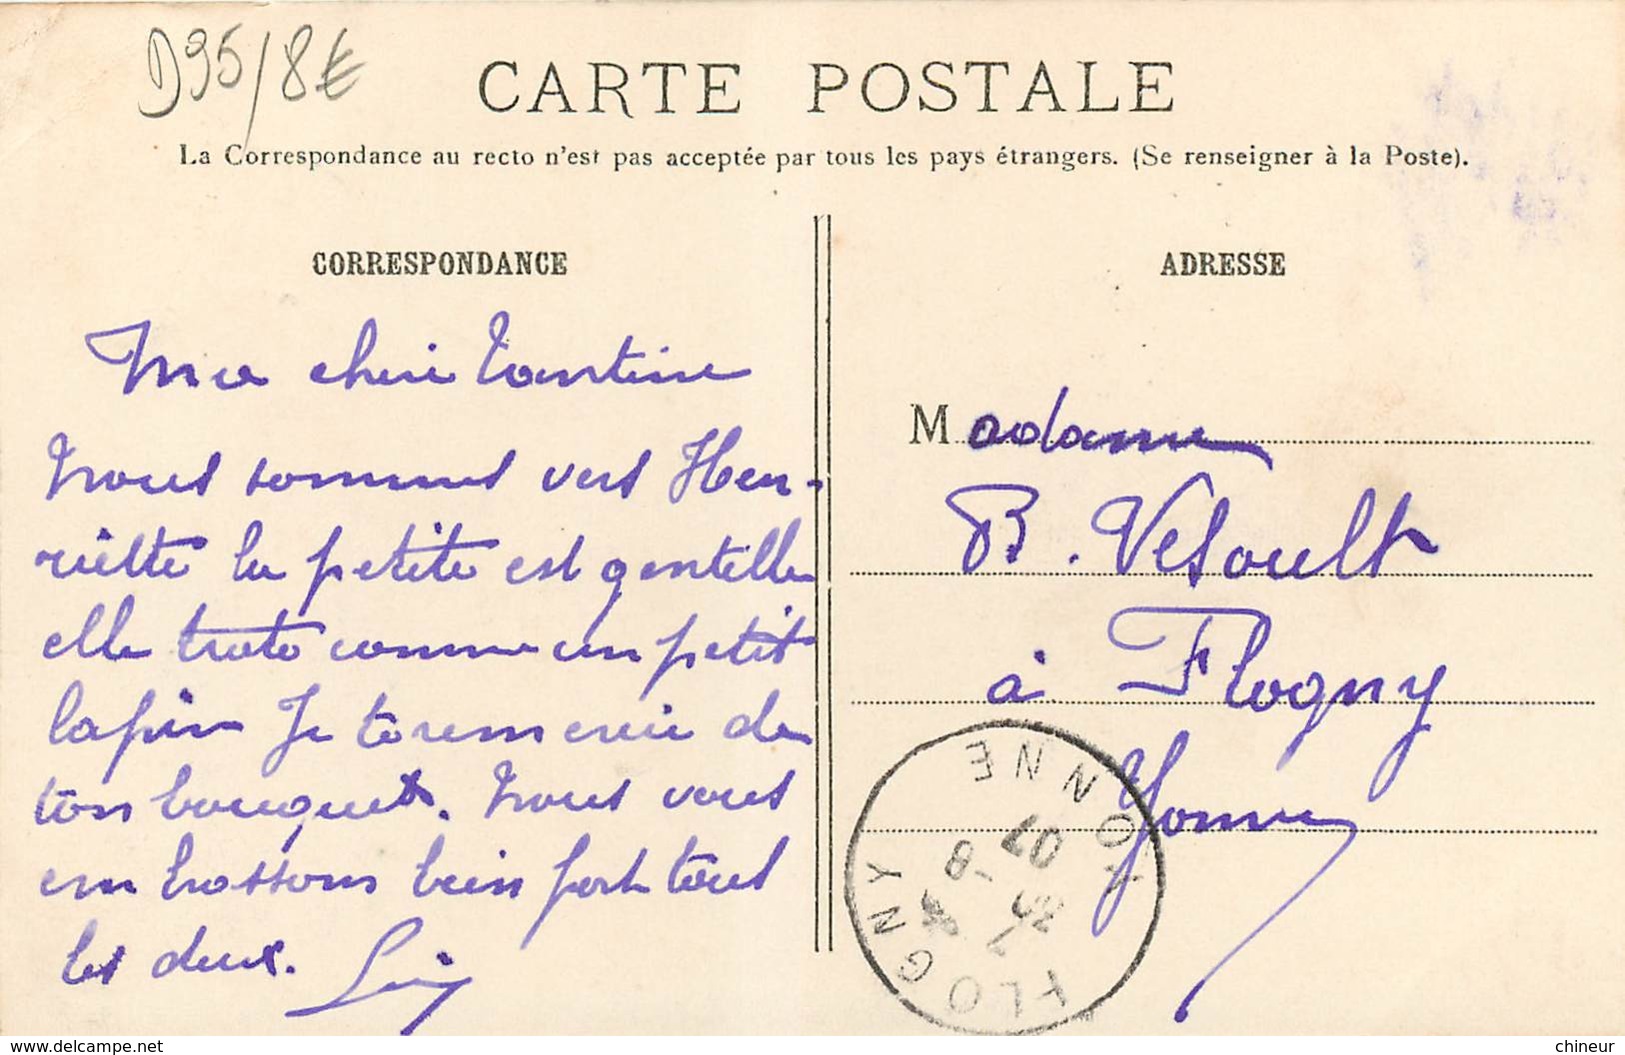 D95/8€
CARTE POSTALE
La Correspondance au recto n'est pas acceptée par tous les pays étrangers. (Se renseigner à la Poste).
CORRESPONDANCE
Ma cheri Tantine
Nous sommes vers Hen-
riette la petite est gentille
elle trote comme un petit
lapin Je te remercie de
ton bouquet. Nous vous
embrassons bien fort tous
les deux.
ADRESSE
Madame
B. Vesoult
à Flogny
Yonne
FLOGNY
YONNE
07
www.delcampe.net
chineur